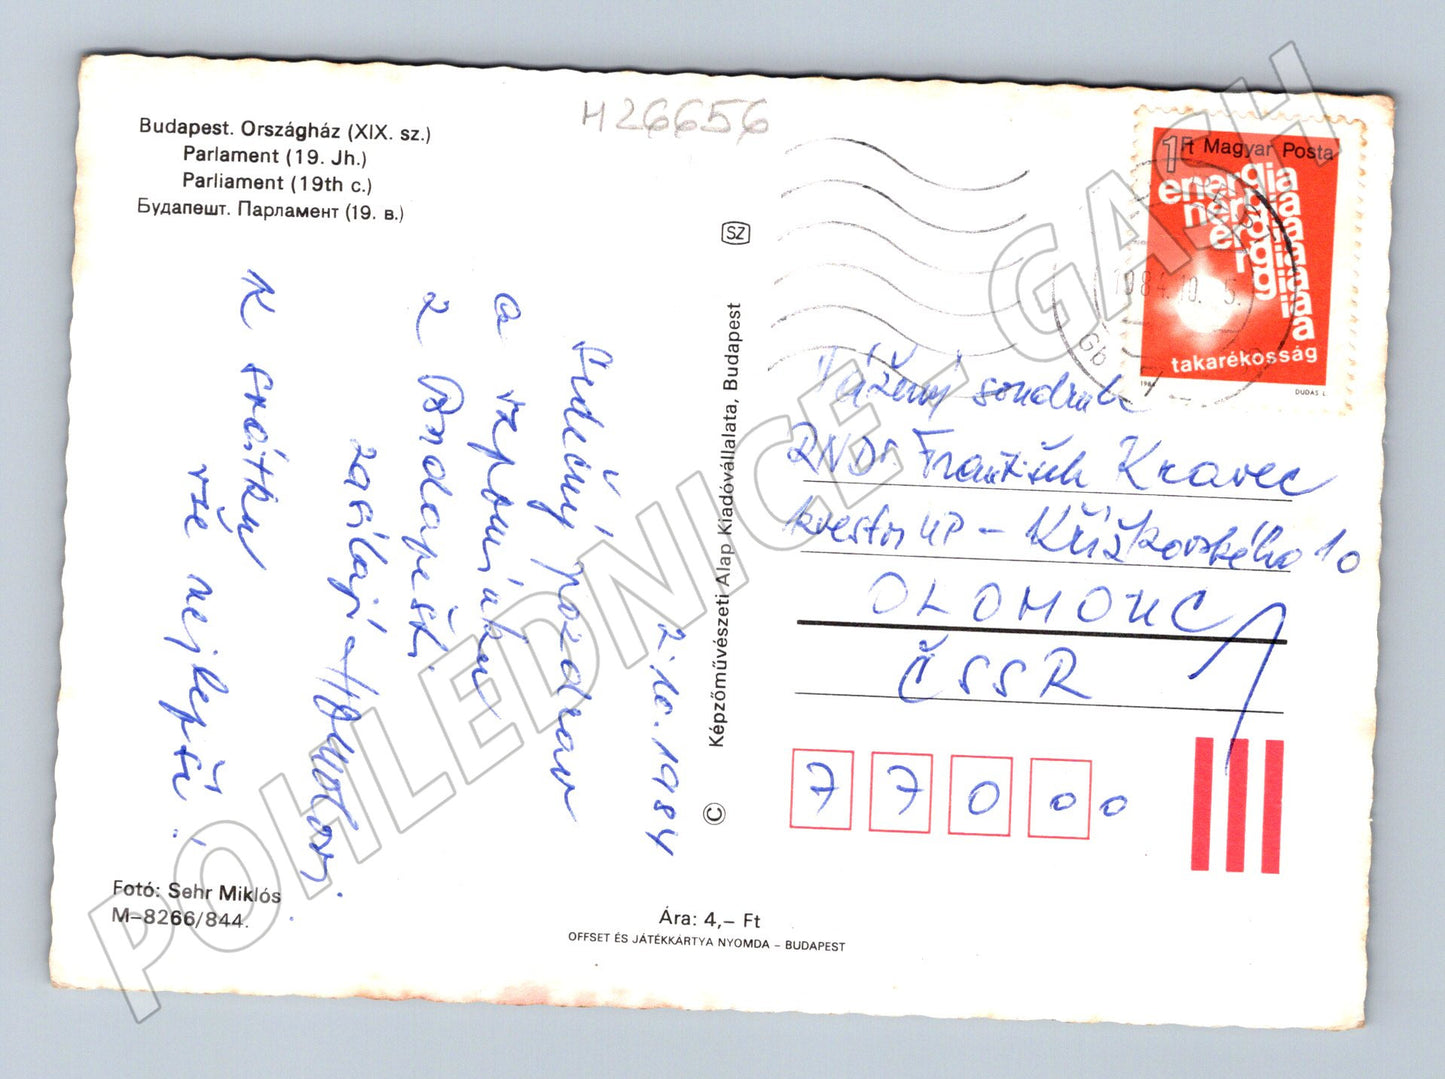 Budapest. Országház (XIX. sz.)
Parlament (19. Jh.)
Parliament (19th c.)
Будапешт. Парламент (19. в.)
H26656
SZ
1Ft Magyar Posta
energia
nergia
ergia
rgia
gia
takarékosság
1984
DUDÁS L.
1984.10. 5.
2.10.1984
Srdečný pozdrav
a vzpomínku
z Budapešti
zasílají
K svátku
vše nejlepší!
Vážený soudruh
RNDr František Kravec
kvestor UP – Křížkovského 10
OLOMOUC
ČSSR
770 00
Képzőművészeti Alap Kiadóvállalata, Budapest
©
Fotó: Sehr Miklós
M–8266/844.
Ára: 4,– Ft
OFFSET ÉS JÁTÉKKÁRTYA NYOMDA – BUDAPEST
POHLEDNICE - GASH